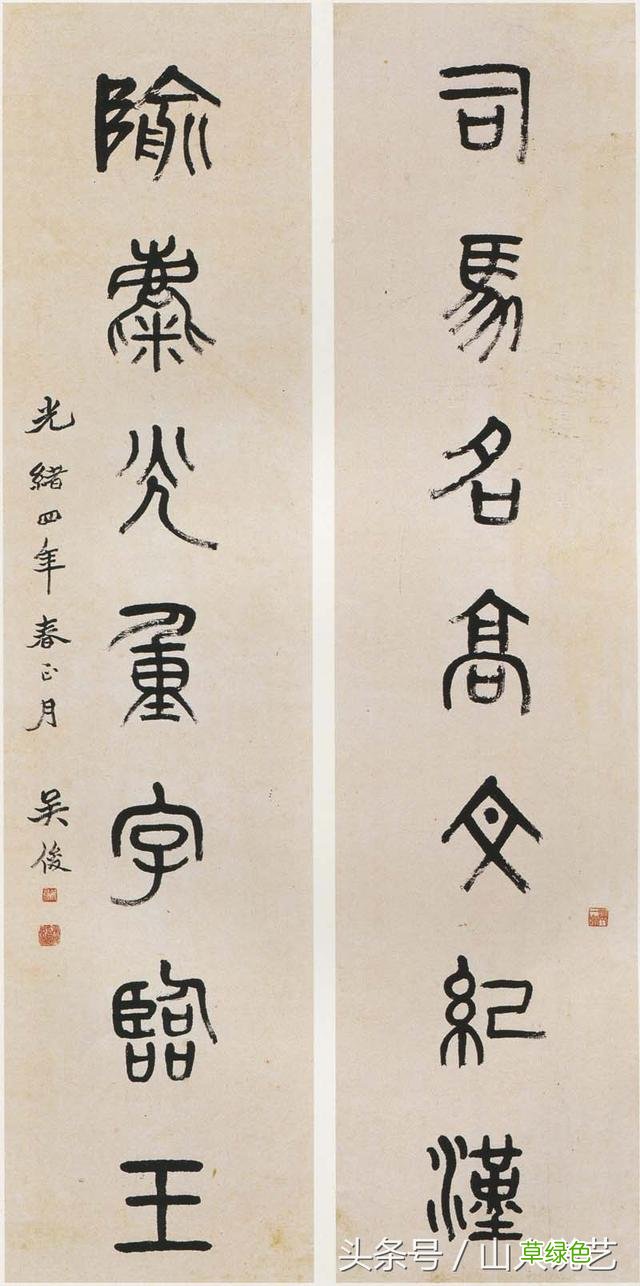 司馬名高文紀漢
隃麋光重字臨王
光緒四年春正月 吳俊
头条号 / 山人艺
草绿色